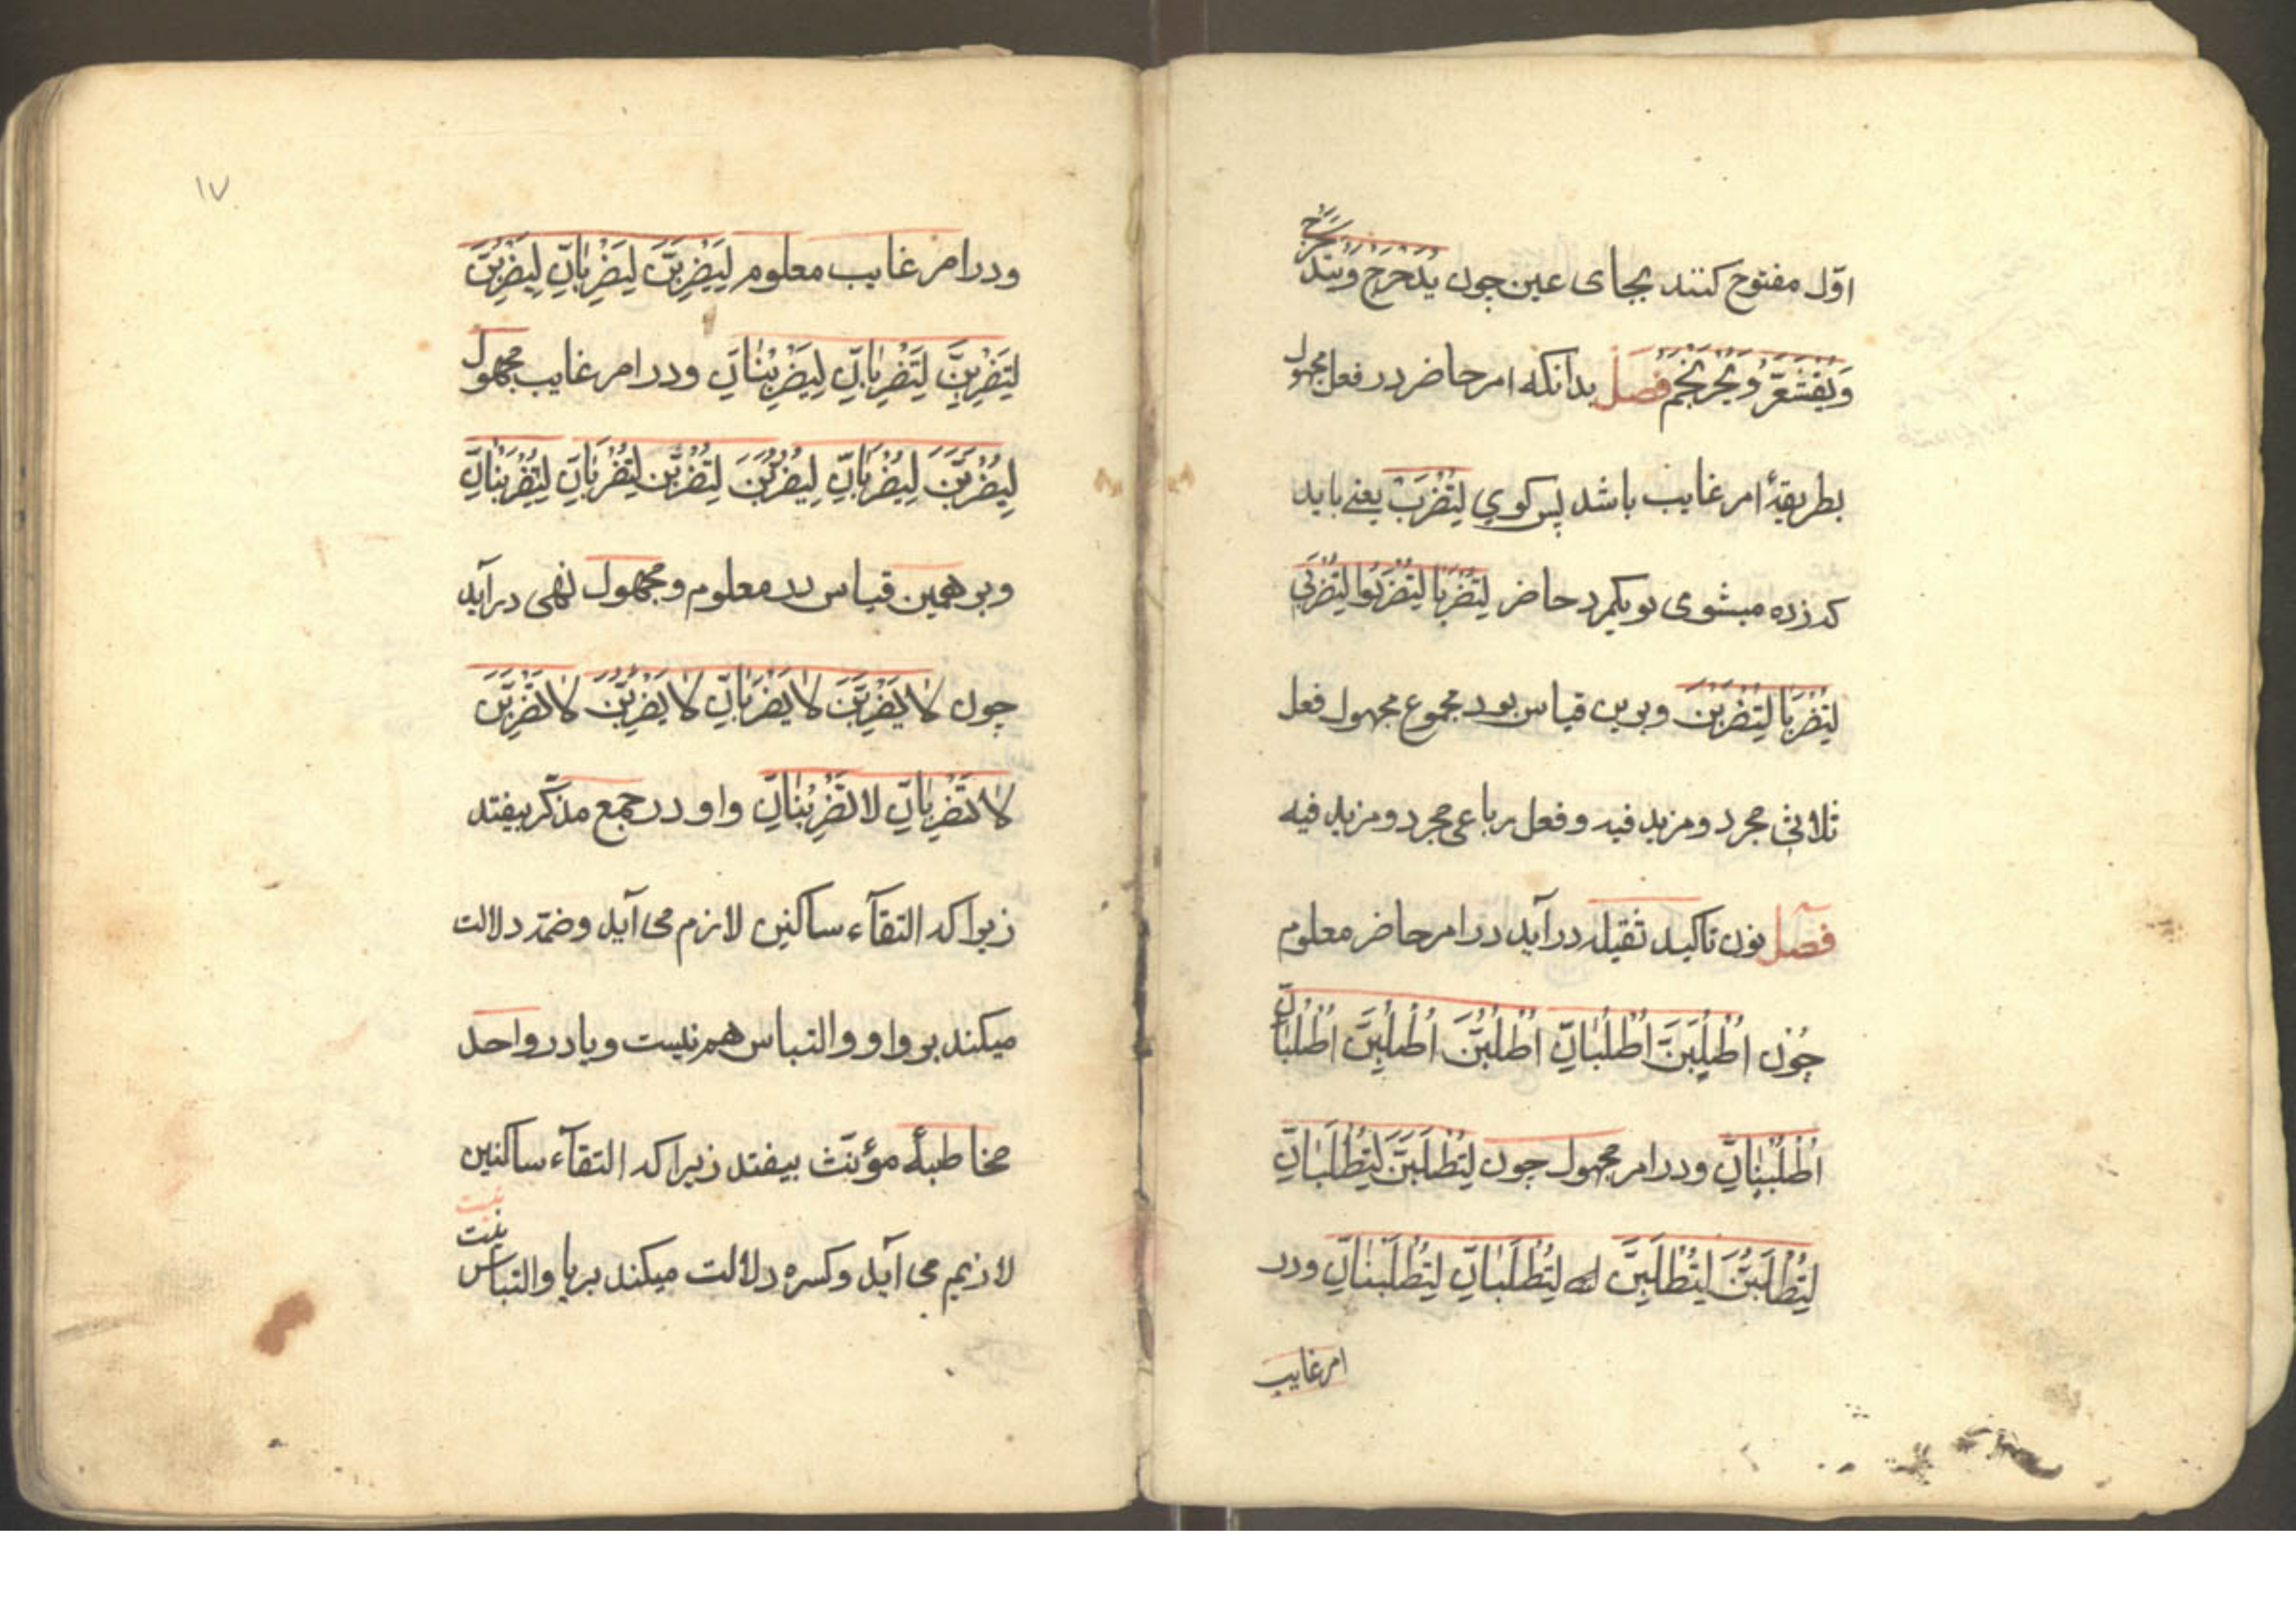 اوّل مفتوح كنند بجای عین چون يُدَحْرَجُ ويُتَدَحْرَجُ
وَيُقْشَعَرُّ و يُحْرَنْجَمُ فصل بدانكه امر حاضر در فعل مجهول
بطريقهٔ امر غایب باشد پس كوي لِتُضْرَبْ یعنے باید
كه زده میشوی تو یكمرد حاضر لِتُضْرَبَا لِتُضْرَبُوا لِتُضْرَبِي
لِتُضْرَبَا لِتُضْرَبْنَ وبرین قیاس بود مجموع مجهول فعل
ثلاثی مجرد ومزید فیه و فعل رباعی مجرد ومزید فیه
فصل نون تاكید ثقیله درآید در امر حاضر معلوم
چُون اُطْلُبَنَّ اُطْلُبَانِّ اُطْلُبُنَّ اُطْلُبِنَّ اُطْلُبَانِّ
اُطْلُبْنَانِّ ودر امر مجهول چون لِتُطْلَبَنَّ لِتُطْلَبَانِّ
لِتُطْلَبُنَّ لِتُطْلَبِنَّ لِتُطْلَبَانِّ لِتُطْلَبْنَانِّ ودر
امر غایب
١٧
ودر امر غایب معلوم لِيَضْرِبَنَّ لِيَضْرِبَانِّ لِيَضْرِبُنَّ
لِتَضْرِبَنَّ لِتَضْرِبَانِّ لِيَضْرِبْنَانِّ ودر امر غایب مجهول
لِيُضْرَبَنَّ لِيُضْرَبَانِّ لِيُضْرَبُنَّ لِتُضْرَبَنَّ لِتُضْرَبَانِّ لِيُضْرَبْنَانِّ
وبر همین قیاس در معلوم ومجهول نهی درآید
چون لا يَضْرِبَنَّ لا يَضْرِبَانِّ لا يَضْرِبُنَّ لا تَضْرِبَنَّ
لا تَضْرِبَانِّ لا تَضْرِبْنَانِّ واو در جمع مذكّر بیفتد
زیرا كه التقآء ساكنین لازم می آید وضمّه دلالت
میكند بر واو والتباس هم نیست ویا در واحد
مخاطبهٔ مؤنّث بیفتد زیرا كه التقآء ساكنین
لازیم می آید وكسره دلالت میكند بر یا والتباس
نیست
نیست